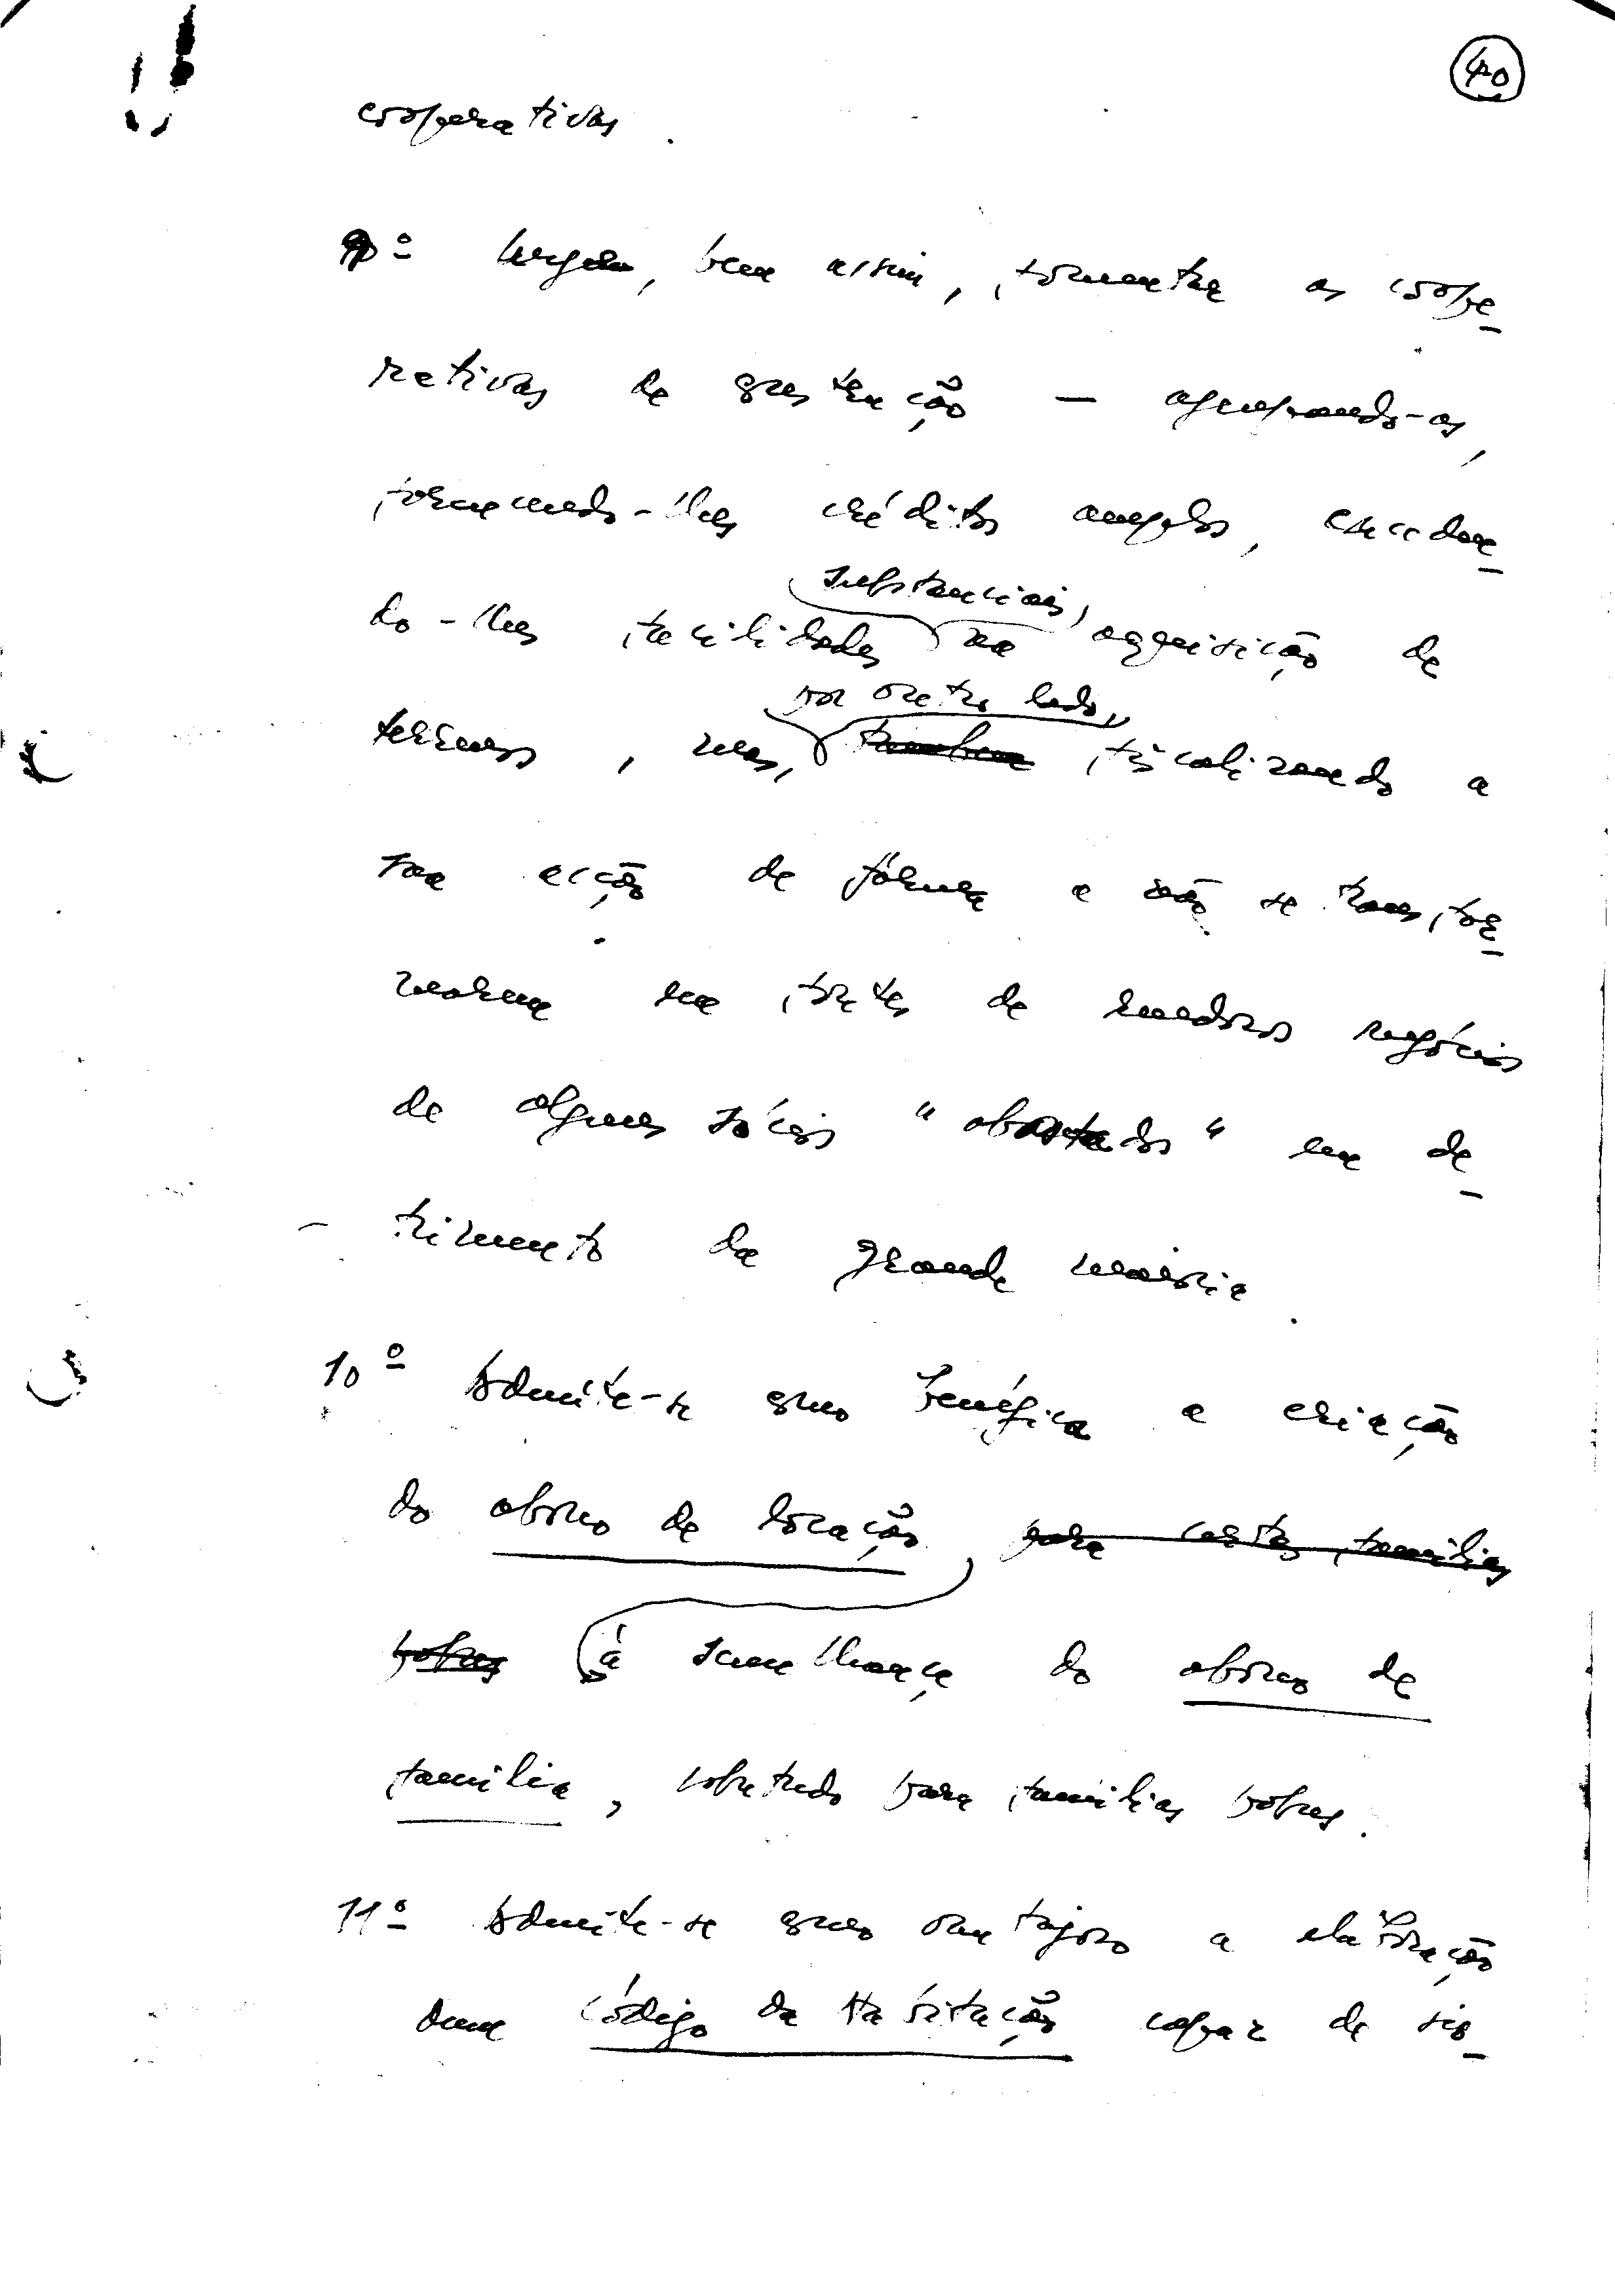 40
cooperativas.
9º Urge, bem assim, fomentar as coope-
rativas de construção — agrupando-as,
fornecendo-lhes créditos amplos, conceden-
substanciais,
do-lhes facilidades na aquisição de
por outro lado,
terrenos, mas, também fiscalizando a
sua acção de forma a não se transfor-
marem em fontes de rendosos negócios
de alguns sócios "abastados" em de-
trimento da grande maioria.
10º Admite-se como benéfica a criação
do abono de locação para certas famílias
pobres à semelhança do abono de
família, sobretudo para famílias pobres.
11º Admite-se como vantajoso a elaboração
dum Código da Habitação capaz de sis-